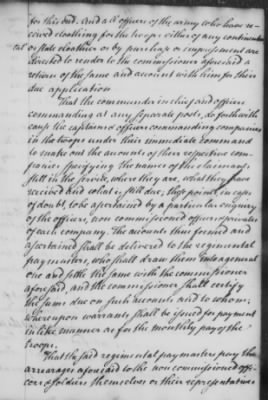 for this end. And all officers of the army who have re-
ceived cloathing for the troops either of any continen
tal or state cloathier or by purchase or impressment are
directed to render to the commissioner aforesaid a
return of the same and account with him for their
due application
That the commander in chief and officers
commanding at any separate posts, do forthwith
cause the captains & officers commanding companies
in the troops under their immediate command
to make out the accounts of their respective com-
panies specifying the names of the claimants
still in the service, where they are, what they have
received and what is still due; these points, in cases
of doubt, to be ascertained by a particular enquiry
of the officers, non commissioned officers & privates
of each company. The accounts thus formed and
ascertained shall be delivered to the regimental
paymasters, who shall draw them into
one and settle the same with the commissioner
aforesaid, and the commissioner shall certify
the same due on such accounts and to whom;
whereupon warrants shall be issued for payment
in like manner as for the monthly pay of the
troops.
That the said regimental paymasters pay the
arrearages aforesaid to the non commissioned offi-
cers & soldiers themselves or their representatives